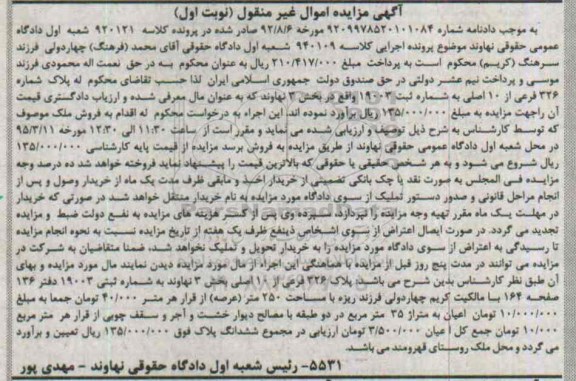 آگهی مزایده اموال غیر منقول (نوبت اول)
به موجب دادنامه شماره ۹۲۰۹۹۷۸۵۲۰۱۰۱۰۸۴ مورخه ۹۲/۸/۶ صادر شده در پرونده کلاسه ۹۲۰۱۲۱ شعبه اول دادگاه
عمومی حقوقی نهاوند موضوع پرونده اجرایی کلاسه ۹۴۰۱۰۹ شعبه اول دادگاه حقوقی آقای محمد (فرهنگ) چهاردولی فرزند
سرهنگ (کریم) محکوم است به پرداخت مبلغ ۲۱۰/۴۱۷/۰۰۰ ریال به عنوان محکوم به در حق نعمت اله محمودی فرزند
موسی و پرداخت نیم عشر دولتی در حق صندوق دولت جمهوری اسلامی ایران لذا حسب تقاضای محکوم له پلاک شماره
۳۲۶ فرعی از ۱۰ اصلی به شماره ثبت ۱۹۰۰۳ واقع در بخش ۳ نهاوند که به عنوان مال معرفی شده و ارزیاب دادگستری قیمت
آن راجهت مزایده به مبلغ ۱۳۵/۰۰۰/۰۰۰ ریال برآورد نموده اند. این اجراء به درخواست محکوم له اقدام به فروش ملک موصوف
که توسط کارشناس به شرح ذیل توصیف و ارزیابی شده می نماید و مقرر است از ساعت ۱۱:۳۰ الی ۱۲:۳۰ مورخه ۹۵/۳/۱۱
در محل شعبه اول دادگاه عمومی حقوقی نهاوند از طریق مزایده به فروش برسد مزایده از قیمت پایه کارشناسی ۱۳۵/۰۰۰/۰۰۰
ریال شروع می شود و به هر شخص حقیقی یا حقوقی که بالاترین قیمت را پیشنهاد نماید فروخته خواهد شد ده درصد وجه
مزایده فی المجلس به صورت نقد یا چک بانکی تضمینی از خریدار اخذ و مابقی ظرف مدت یک ماه از خریدار وصول و پس از
انجام مراحل قانونی و صدور دستور تملیک از سوی دادگاه مورد مزایده به نام خریدار منتقل خواهد شد در صورتی که خریدار
در مهلت یک ماه مقرر تهیه وجه مزایده را نپردازد، سپرده وی پس از کسر هزینه های مزایده به نفع دولت ضبط و مزایده
تجدید می گردد. در صورت ایصال اعتراض از سوی اشخاص ذینفع ظرف یک هفته از تاریخ مزایده نسبت به نحوه انجام مزایده
تا رسیدگی به اعتراض از سوی دادگاه مورد مزایده را به خریدار تحویل و تملیک نخواهد شد، ضمنا متقاضیان به شرکت در
مزایده می توانند در مدت پنج روز قبل از مزایده با هماهنگی این اجراء از مال مورد مزایده دیدن نمایند مال مورد مزایده و بهای
آن طبق نظر کارشناس بدین شرح می باشد: پلاک ۳۲۶ فرعی از ۱۰ اصلی بخش ۳ نهاوند به شماره ثبتی ۱۹۰۰۳ دفتر ۱۳۶
صفحه ۱۶۴ با مالکیت کریم چهاردولی فرزند ریزه با مساحت ۲۵۰ متر (عرصه) از قرار هر متر ۴۰/۰۰۰ تومان جمعا به مبلغ
۱۰/۰۰۰/۰۰۰ تومان اعیان به متراژ ۳۵۰ متر مربع در دو طبقه با مصالح دیوار خشت و آجر و سقف چوبی از قرار هر متر مربع
۱۰/۰۰۰ تومان جمع کل اعیان ۳/۵۰۰/۰۰۰ تومان ارزیابی در مجموع ششدانگ پلاک فوق ۱۳۵/۰۰۰/۰۰۰ ریال تعیین و برآورد
می گردد و محل ملک روستای قهرومند می باشد.
۵۵۳۱- رئیس شعبه اول دادگاه حقوقی نهاوند - مهدی پور